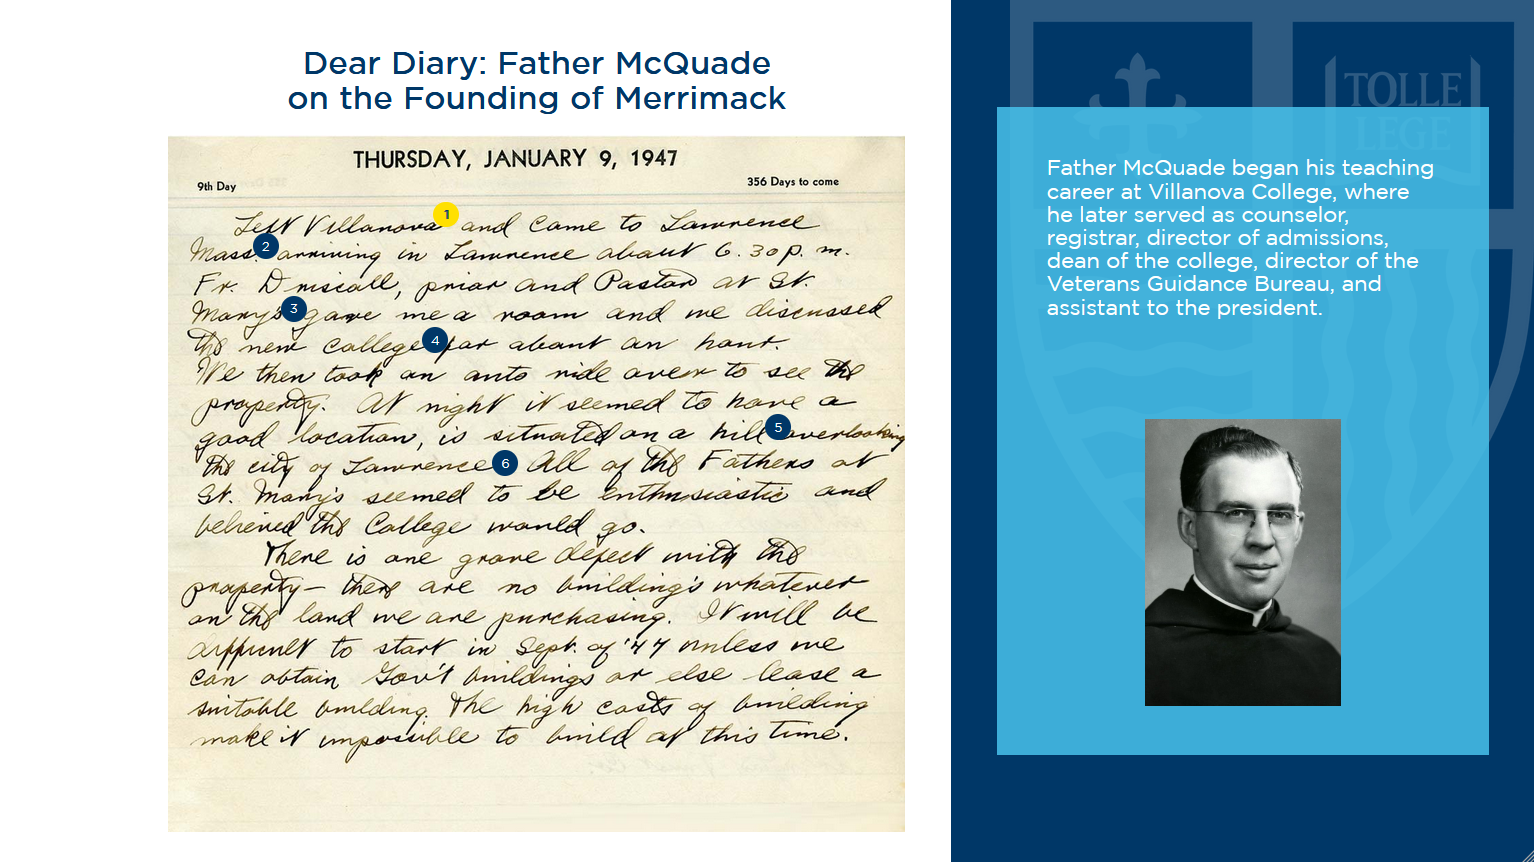 Dear Diary: Father McQuade
on the Founding of Merrimack
THURSDAY, JANUARY 9, 1947
9th Day
356 Days to come
Left Villanova 1 and came to Lawrence
Mass. 2 arriving in Lawrence about 6.30 p.m.
Fr. Driscoll, prior and Pastor at St.
Mary's 3 gave me a room and we discussed
the new college 4 for about an hour.
We then took an auto ride over to see the
property. At night it seemed to have a
good location, is situated on a hill 5 overlooking
the city of Lawrence 6 All of the Fathers at
St. Mary's seemed to be enthusiastic and
believed the College would go.
There is one grave defect with the
property — there are no building's whatever
on the land we are purchasing. It will be
difficult to start in Sept. of '47 unless we
can obtain Gov't buildings or else lease a
suitable building. The high costs of building
make it impossible to build at this time.
TOLLE
LEGE
Father McQuade began his teaching
career at Villanova College, where
he later served as counselor,
registrar, director of admissions,
dean of the college, director of the
Veterans Guidance Bureau, and
assistant to the president.